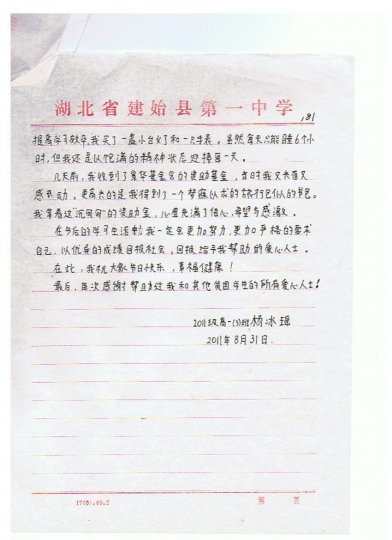 湖北省建始县第一中学
提高学习效率,我买了一盏小台灯和一只手表。虽然每天只能睡6个小
时,但我还是以饱满的精神状态迎接每一天。
几天前,我收到了 基金会的资助基金,当时我又大喜又
感动。更高兴的是我得到了一个梦寐以求的旅行包似的书包。
我拿着这“沉甸甸”的资助金,心里充满了信心,希望与感激。
在今后的学习生活中我一定会更加努力,更加严格的要求
自己,以优异的成绩回报社会,回报给予我帮助的爱心人士。
在此,我祝大家节日快乐,幸福健康!
最后,再次感谢帮助过我和其他贫困学生的所有爱心人士!
2011级高一(3)班杨冰瑶
2011年8月31日.
第 页